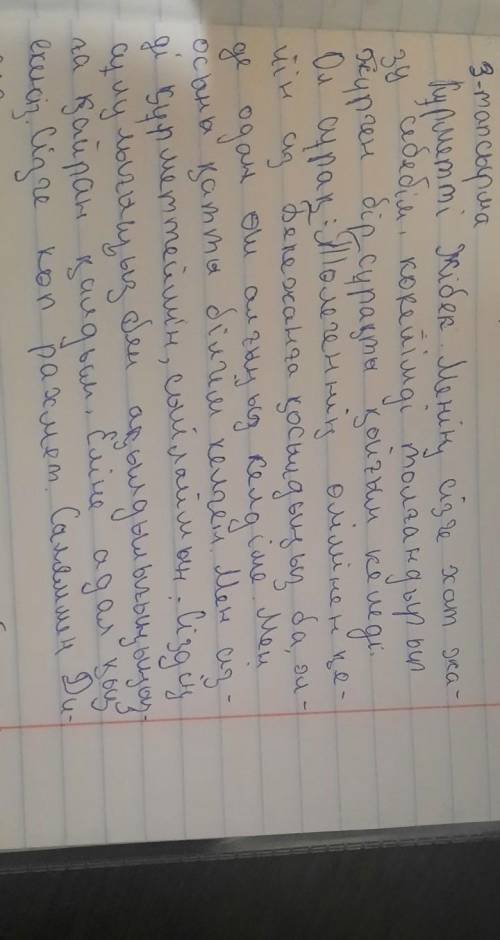 9-тапсырма
Құрметті Жібек. Менің сізге хат жа-
зу себебім, көкейімді толғандырып
жүрген бір сұрақты қойғым келеді.
Ол сұрақ: Төлегеннің өлімінен ке-
йін сіз Бекежанға қосылдыңыз ба, әл-
де одан өш алғыңыз келді ме. Мен
осыны қатты білгім келген. Мен сіз-
ді құрметтеймін, сыйлаймын. Сіздің
сұлулығыңыз бен ақылдылығыңызға
ға қайран қалдым. Еліне адал қыз
екенсіз. Сізге көп рахмет. Сәлеммен Ди-